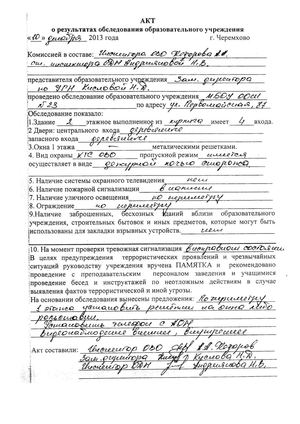 АКТ
о результатах обследования образовательного учреждения
«10» декабря 2013 года г. Черемхово
Комиссией в составе: Инспектора ОВО Ходорова А.А.
ст. инспектора ОДН Андрияновой Н.В.
представителя образовательного учреждения Зам. директора
по УВР Кисловой Н.Д.
проведено обследование образовательного учреждения МБОУ ООШ
№ 23 по адресу ул. Первомайская,
Обследование показало:
1.Здание 2 этажное выполненное из кирпича имеет 4 входа.
2 Двери: центрального входа деревянные
запасного входа деревянные
3.Окна 1 этажа — металлическими решетками.
4. Вид охраны КТС ОВО пропускной режим имеется
осуществляет в виде дежурной ночью сторожа
5. Наличие системы охранного телевидения нет
6. Наличие пожарной сигнализации в наличии
7. Наличие уличного освещения по периметру
8. Ограждение по периметру
9.Наличие заброшенных, бесхозных зданий вблизи образовательного
учреждения, строительных бытовок и иных предметов, которые могут быть
использованы для закладки взрывных устройств. нет
10. На момент проверки тревожная сигнализация в исправном состоянии.
В целях предупреждения террористических проявлений и чрезвычайных
ситуаций руководству учреждения вручена ПАМЯТКА и рекомендовано
проведение с преподавательским персоналом заведения и учащимися
проведение бесед и инструктажей по неотложным действиям в случае
выявления фактов террористической и иной угрозы.
На основании обследования вынесены предложения: По периметру
1 этажа установить решётки на окна либо
рольставни.
Установить телефон с АОН
видеонаблюдение внешнее, внутреннее
Акт составили: Инспектор ОВО А.А. Ходоров
Зам. директора Кислова Н.Д.
Инспектор ОДН Андриянова Н.В.